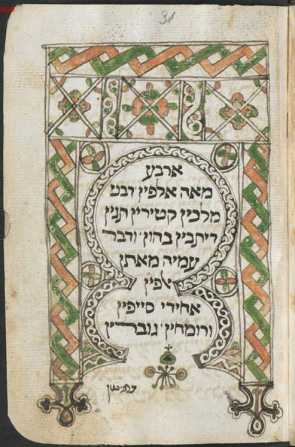 31
ארבע
מאה אלפין דבע
מלכין קטירין תגין
דיתבין בהון ודבר
עמיה מאתן
אלפין
אחידי סייפין
ורומחין גוברין